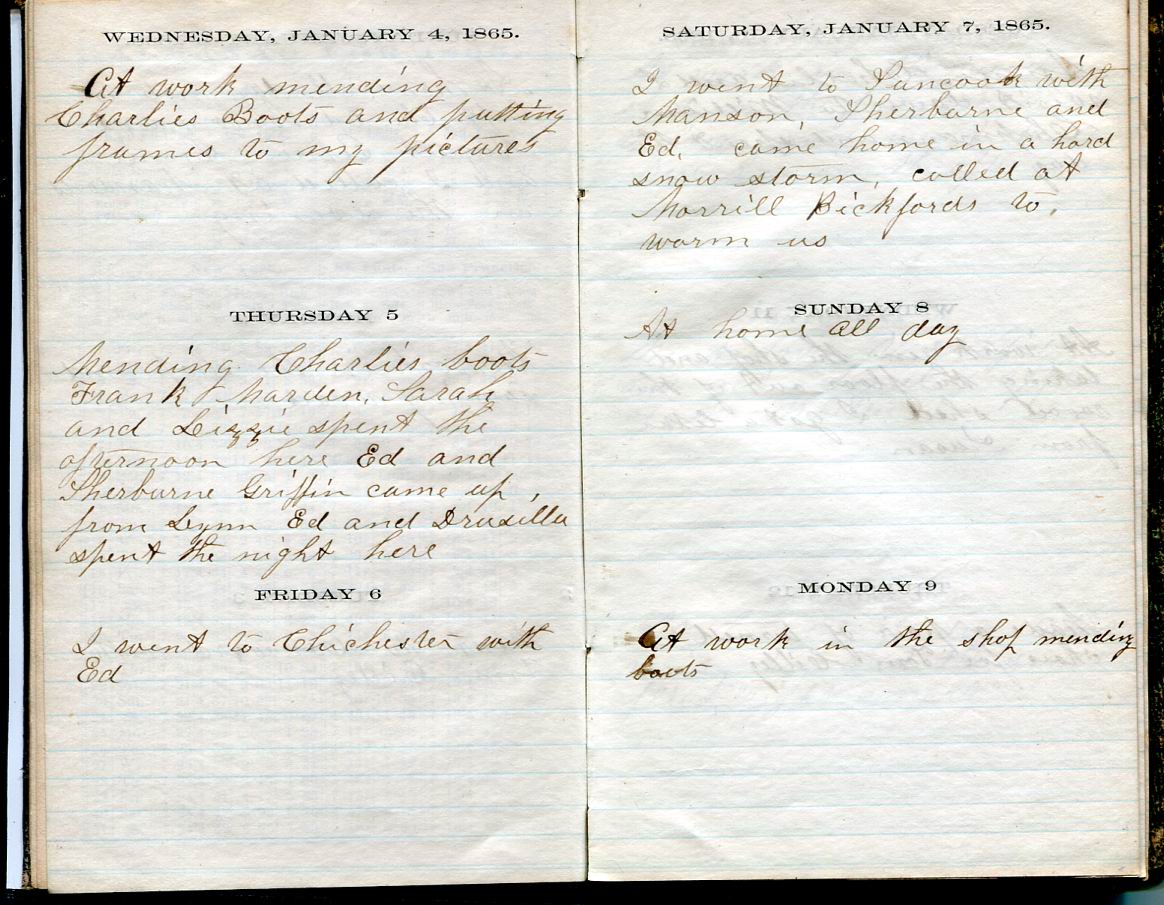 WEDNESDAY, JANUARY 4, 1865.
At work mending
Charlies Boots and putting
frames to my pictures
THURSDAY 5
Mending Charlies boots
Frank Marden, Sarah
and Lizzie spent the
afternoon here Ed and
Sherburne Griffin came up,
from Lynn Ed and Drusilla
spent the night here
FRIDAY 6
I went to Chichester with
Ed
SATURDAY, JANUARY 7, 1865.
I went to Suncook with
Manson, Sherburne and
Ed, came home in a hard
snow storm, called at
Morrill Bickfords to,
warm us
SUNDAY 8
At home all day
MONDAY 9
At work in the shop mending
boots